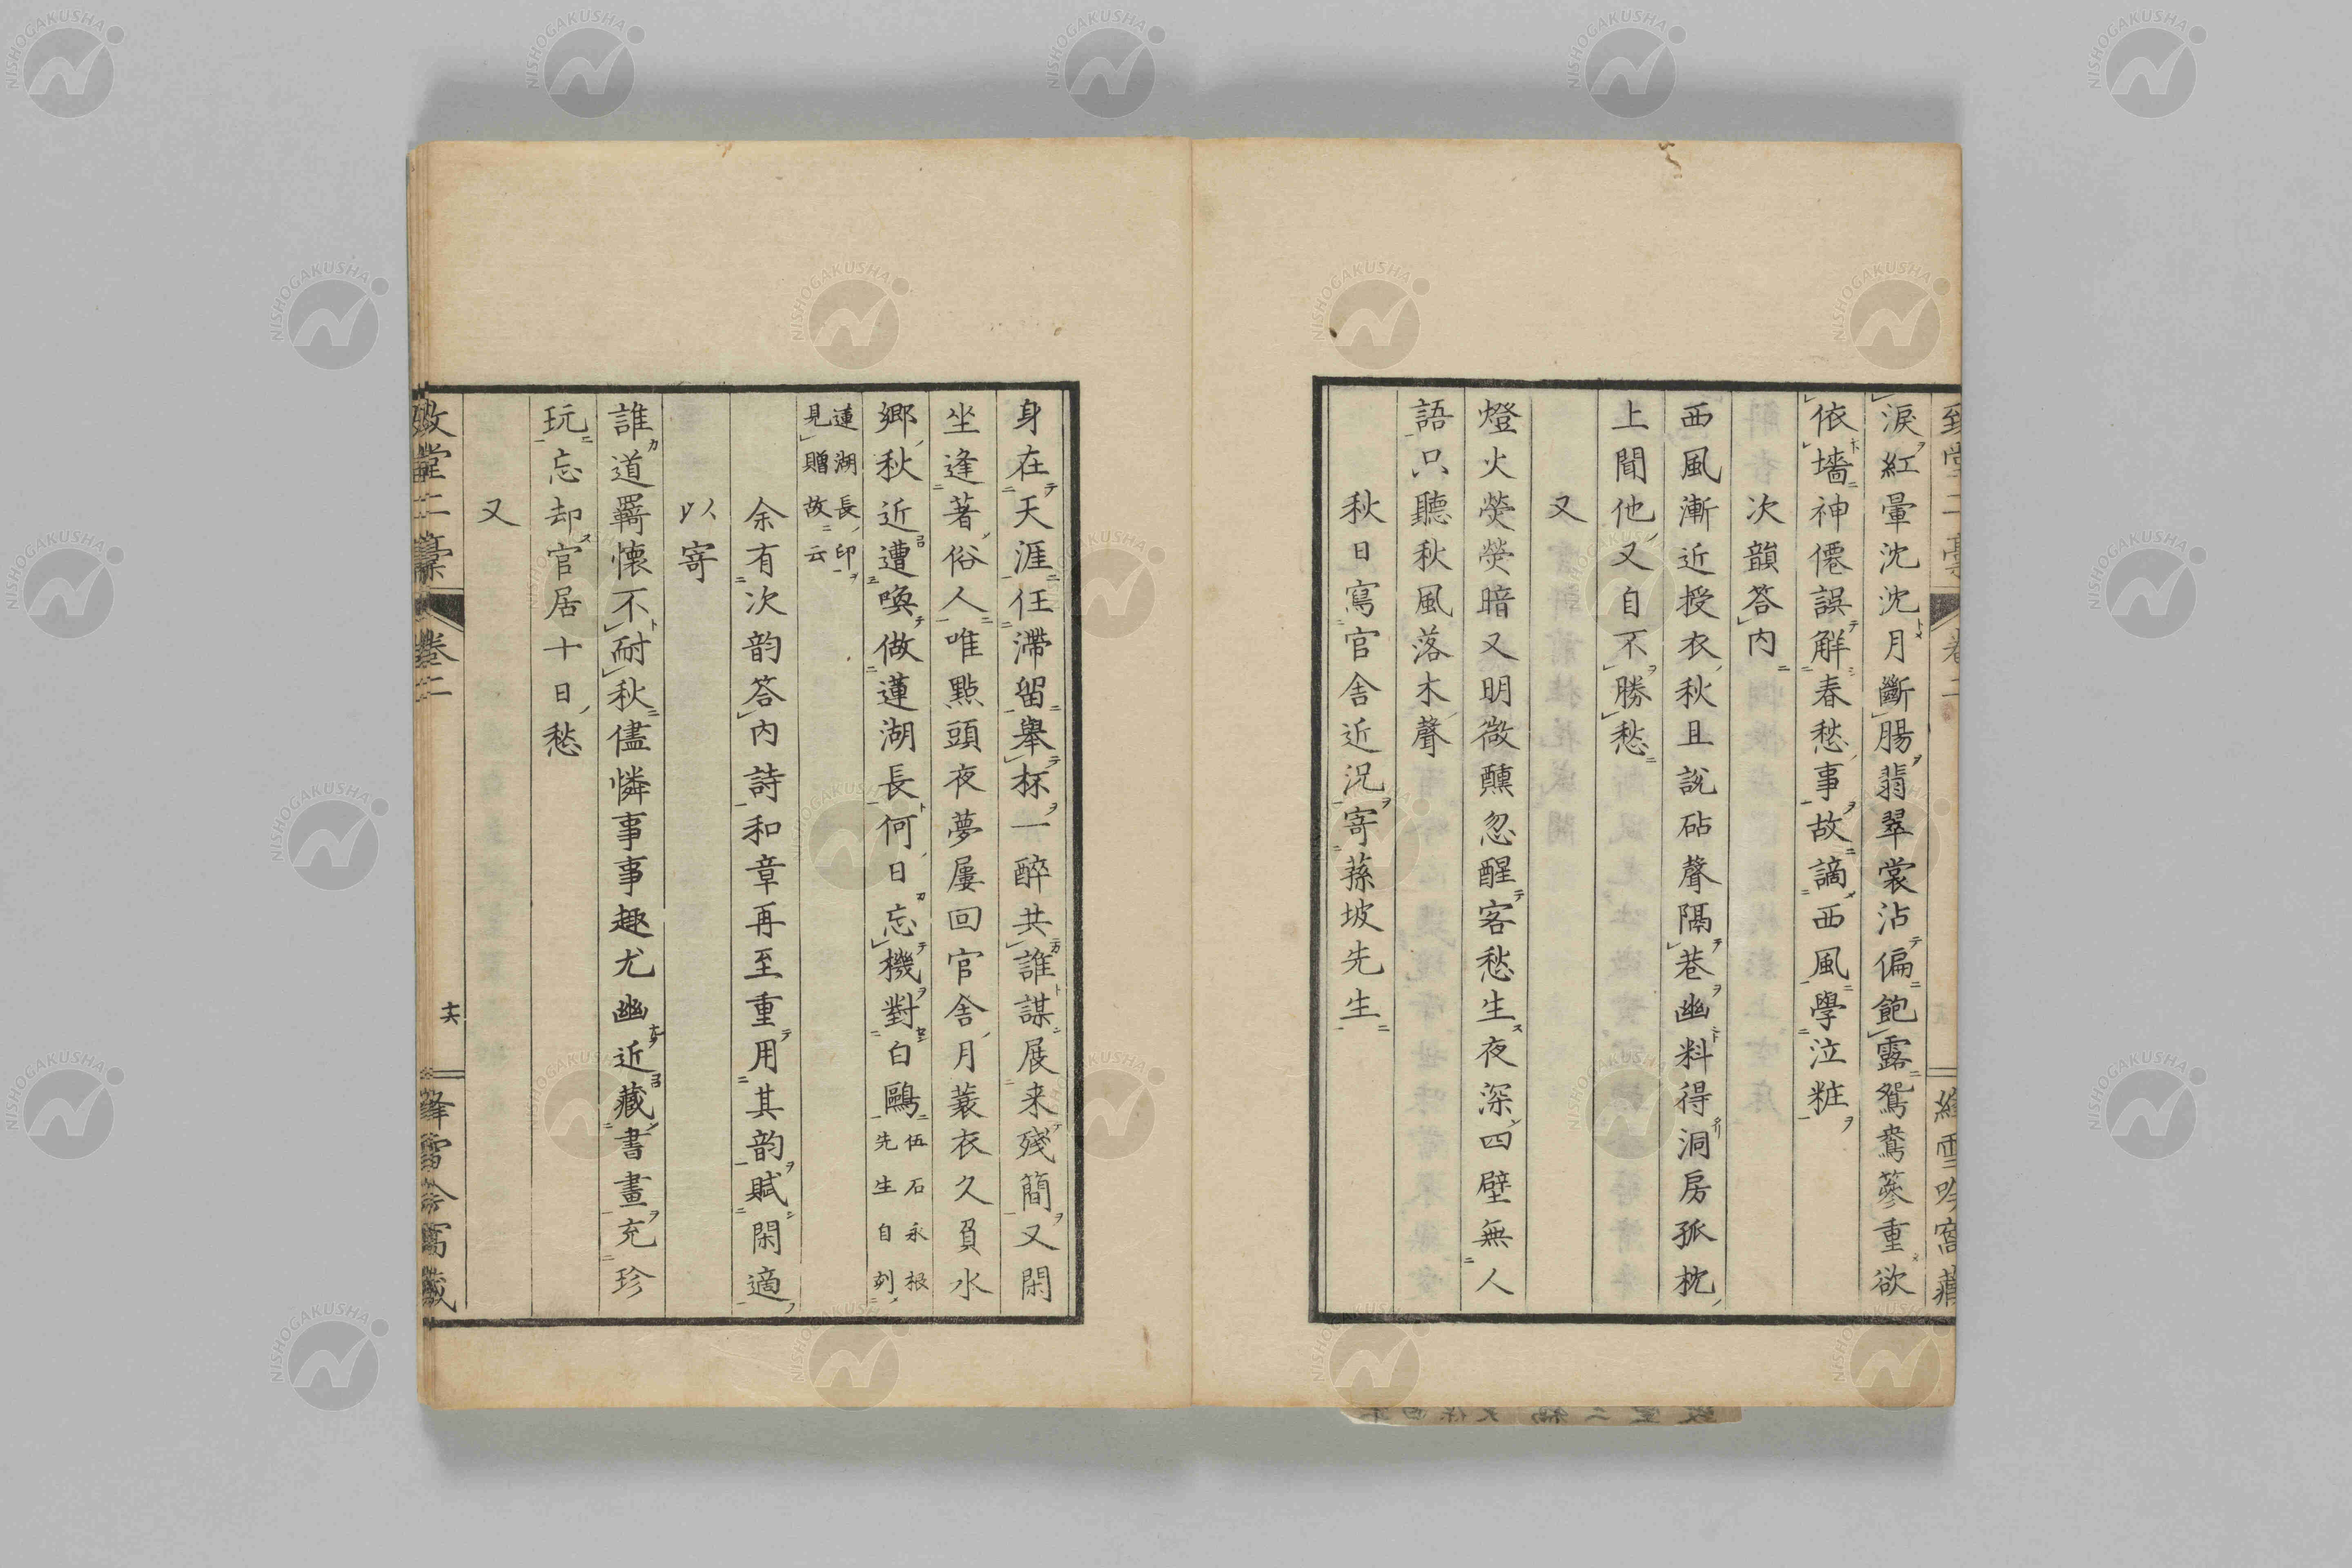 淚紅暈沈沈月斷腸翡翠裳沾偏飽露鴛鴦蔘重欲
依墻神僊誤解春愁事故謫西風學泣粧
次韻答內
西風漸近授衣秋且說砧聲隔巷幽料得洞房孤枕
上閒他又自不勝愁
又
燈火熒熒暗又明微醺忽醒客愁生夜深四壁無人
語只聽秋風落木聲
秋日寫官舍近況寄蓀坡先生
身在天涯任滯留舉杯一醉共誰謀展来殘簡又閑
坐逢著俗人唯點頭夜夢屢回官舍月蓑衣久負水
鄉秋近遭喚做蓮湖長何日忘機對白鷗
伍石永根
先生自刻
蓮湖長印
見贈故云
余有次韵答內詩和章再至重用其韵賦閑適
以寄
誰道羈懷不耐秋儘憐事事趣尤幽近藏書畫充珍
玩忘却官居十日愁
又
卷二
十六
NISHOGAKUSHA